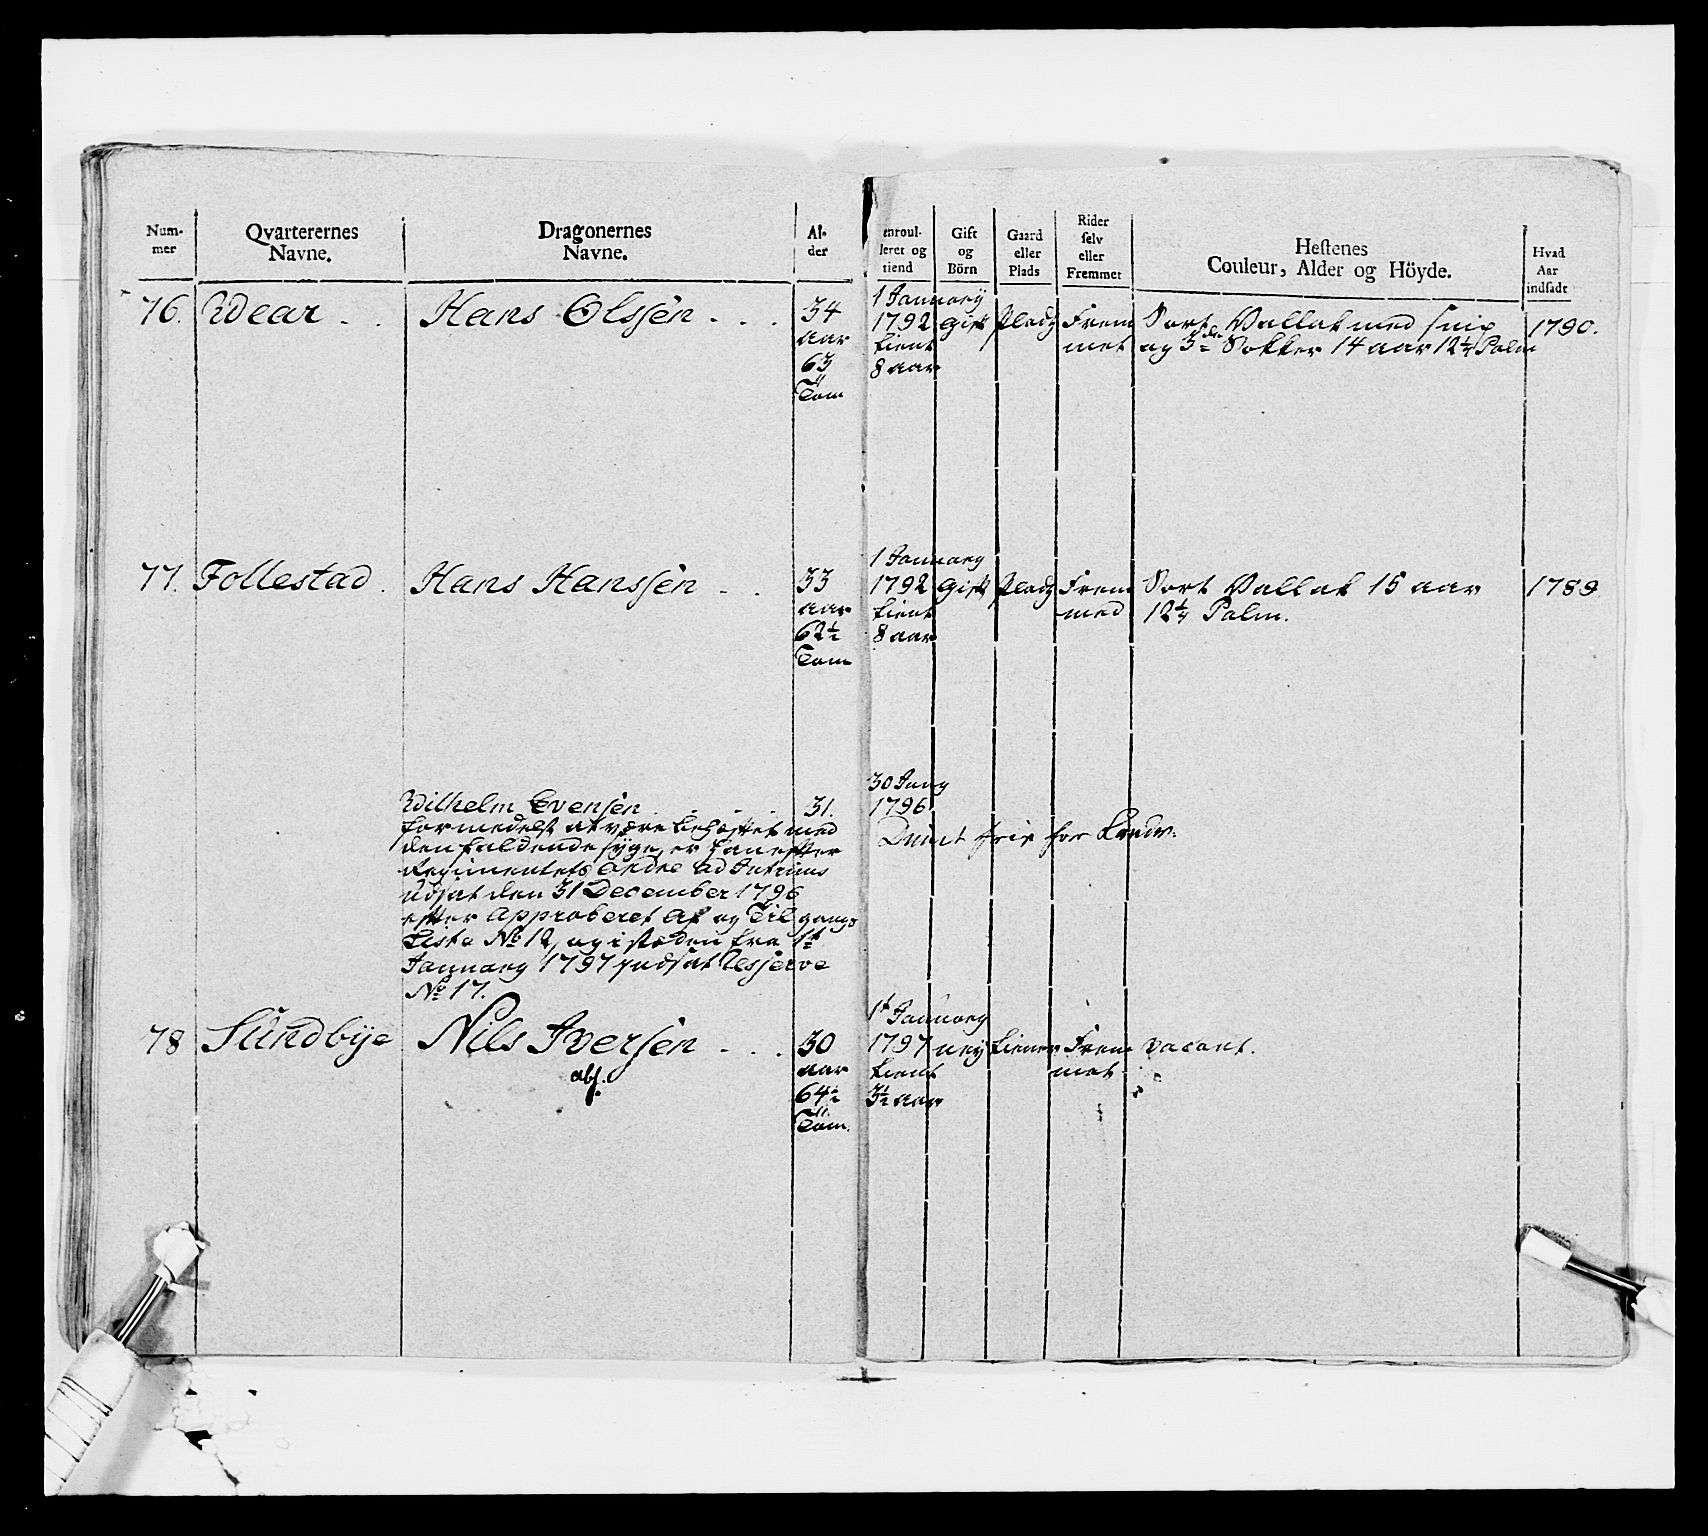 Num-
mer
Qvarterernes
Navne.
Dragonernes
Navne.
Al-
der
enroul-
leret og
tiend
Gift
og
Börn
Gaard
eller
Plads
Rider
selv
eller
Fremmet
Hestenes
Couleur, Alder og Höyde.
Hvad
Aar
indsadt
76. Wear . . Hans Olssen . . .
34
aar
63
Tom
1 January
1792
tient
8 aar
Gift
Pladz
Frem
met
Sort Vallak med snip
og 3de Sokker 14 aar 12¼ Palm
1790.
77. Follestad . Hans Hanssen . .
33
aar
62½
Tom
1 January
1792
tient
8 aar
Gift
Pladz
Frem
med
Sort Vallak 15 aar
12¼ Palm.
1789
Wilhelm Evensen . . . . 31.
formedelst at være behæftet med
den faldende syge, er han efter
Regimentets Ordre ad Interims
Udsat den 31 December 1796
efter Approberet Af og Tilgangs
Liste No 12, og i steden fra 1t
January 1797 indsat Resserve
No 17.
30 Juny
1796.
78 Sundbye Nils Iversen . . .
abs.
30
aar
64½
Tom.
1t January
1797
tient
3½ aar
ney
tiener
Frem
met
vacant.